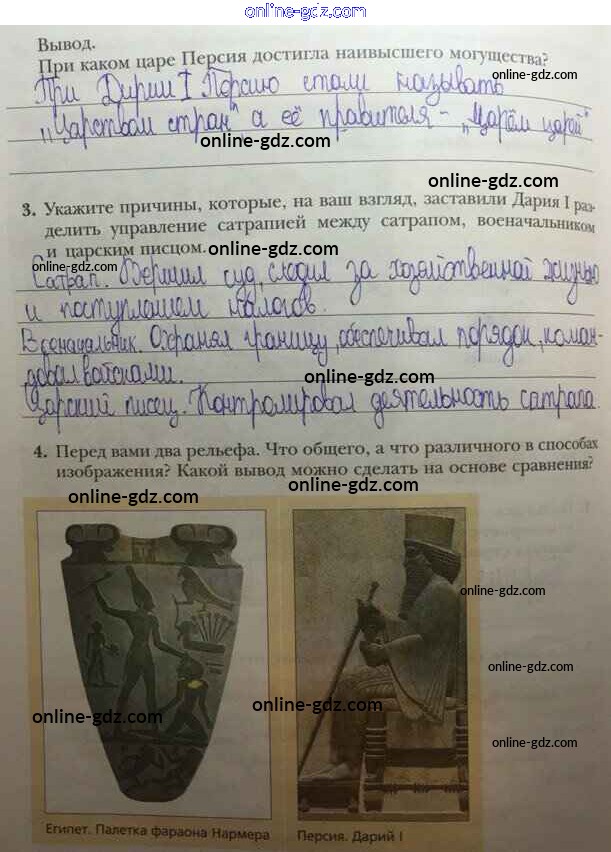 online-gdz.com
Вывод.
При каком царе Персия достигла наивысшего могущества?
online-gdz.com
При Дарии I Персию стали называть
„Царством стран" а её правителя – „Царём царей"
online-gdz.com
online-gdz.com
3. Укажите причины, которые, на ваш взгляд, заставили Дария I раз-
делить управление сатрапией между сатрапом, военачальником
и царским писцом.
online-gdz.com
online-gdz.com
Сатрап. Вершил суд, следил за хозяйственной жизнью
и поступлением налогов.
Военачальник. Охранял границу, обеспечивал порядок, коман-
довал войсками.
online-gdz.com
Царский писец. Контролировал деятельность сатрапа.
4. Перед вами два рельефа. Что общего, а что различного в способах
изображения? Какой вывод можно сделать на основе сравнения?
online-gdz.com
online-gdz.com
online-gdz.com
online-gdz.com
online-gdz.com
online-gdz.com
online-gdz.com
Египет. Палетка фараона Нармера
Персия. Дарий I